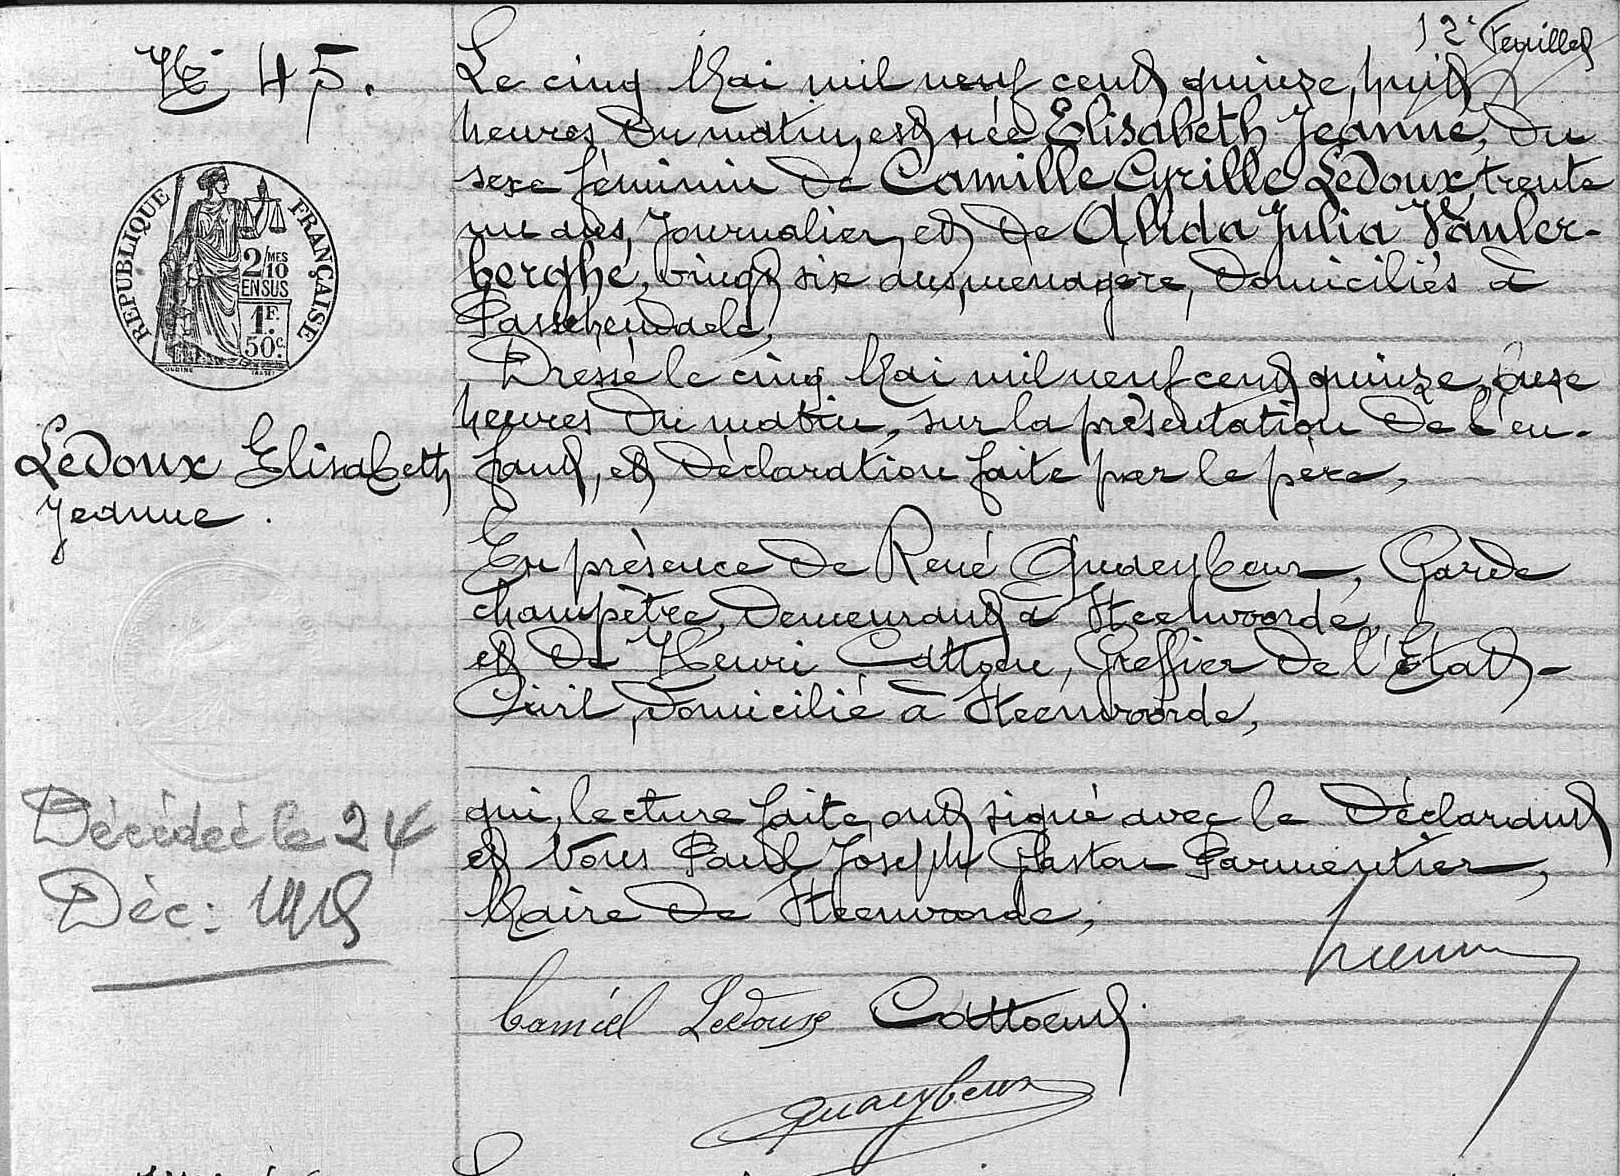 12e Feuillet
No 45.
Le cinq Mai mil neuf cent quinze, huit
heures du matin, est née Elisabeth Jeanne, du
sexe féminin de Camille Cyrille Ledoux, trente
un ans, Journalier, et de Alida Julia Vanler-
berghe, vingt six ans, ménagère, domiciliés à
Passchendaele,
RÉPUBLIQUE FRANÇAISE
2/MES
10
EN SUS
1F.
50c.
Dressé le cinq Mai mil neuf cent quinze, onze
heures du matin, sur la présentation de l'en-
fant, et déclaration faite par le père,
Ledoux Elisabeth
Jeanne.
En présence de René Quaeybeur, Garde
champêtre, demeurant à Steenvoorde,
et de Henri Cattoen, Greffier de l'Etat-
Civil, domicilié à Steenvoorde,
qui, lecture faite, ont signé avec le Déclarant
et Nous Paul Joseph Gaston Parmentier,
Maire de Steenvoorde,
Décédée le 24
Déc: 1915
Camiel Ledoux Cattoen
Quaeybeur